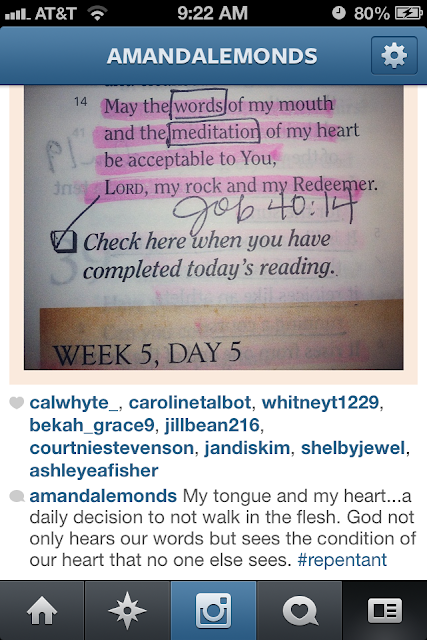 AT&T 9:22 AM 80%
AMANDALEMONDS
14 May the words of my mouth
and the meditation of my heart
be acceptable to You,
LORD, my rock and my Redeemer.
Job 40:14
Check here when you have
completed today's reading.
WEEK 5, DAY 5
calwhyte_, carolinetalbot, whitneyt1229,
bekah_grace9, jillbean216,
courtniestevenson, jandiskim, shelbyjewel,
ashleyeafisher
amandalemonds My tongue and my heart...a
daily decision to not walk in the flesh. God not
only hears our words but sees the condition of
our heart that no one else sees. #repentant